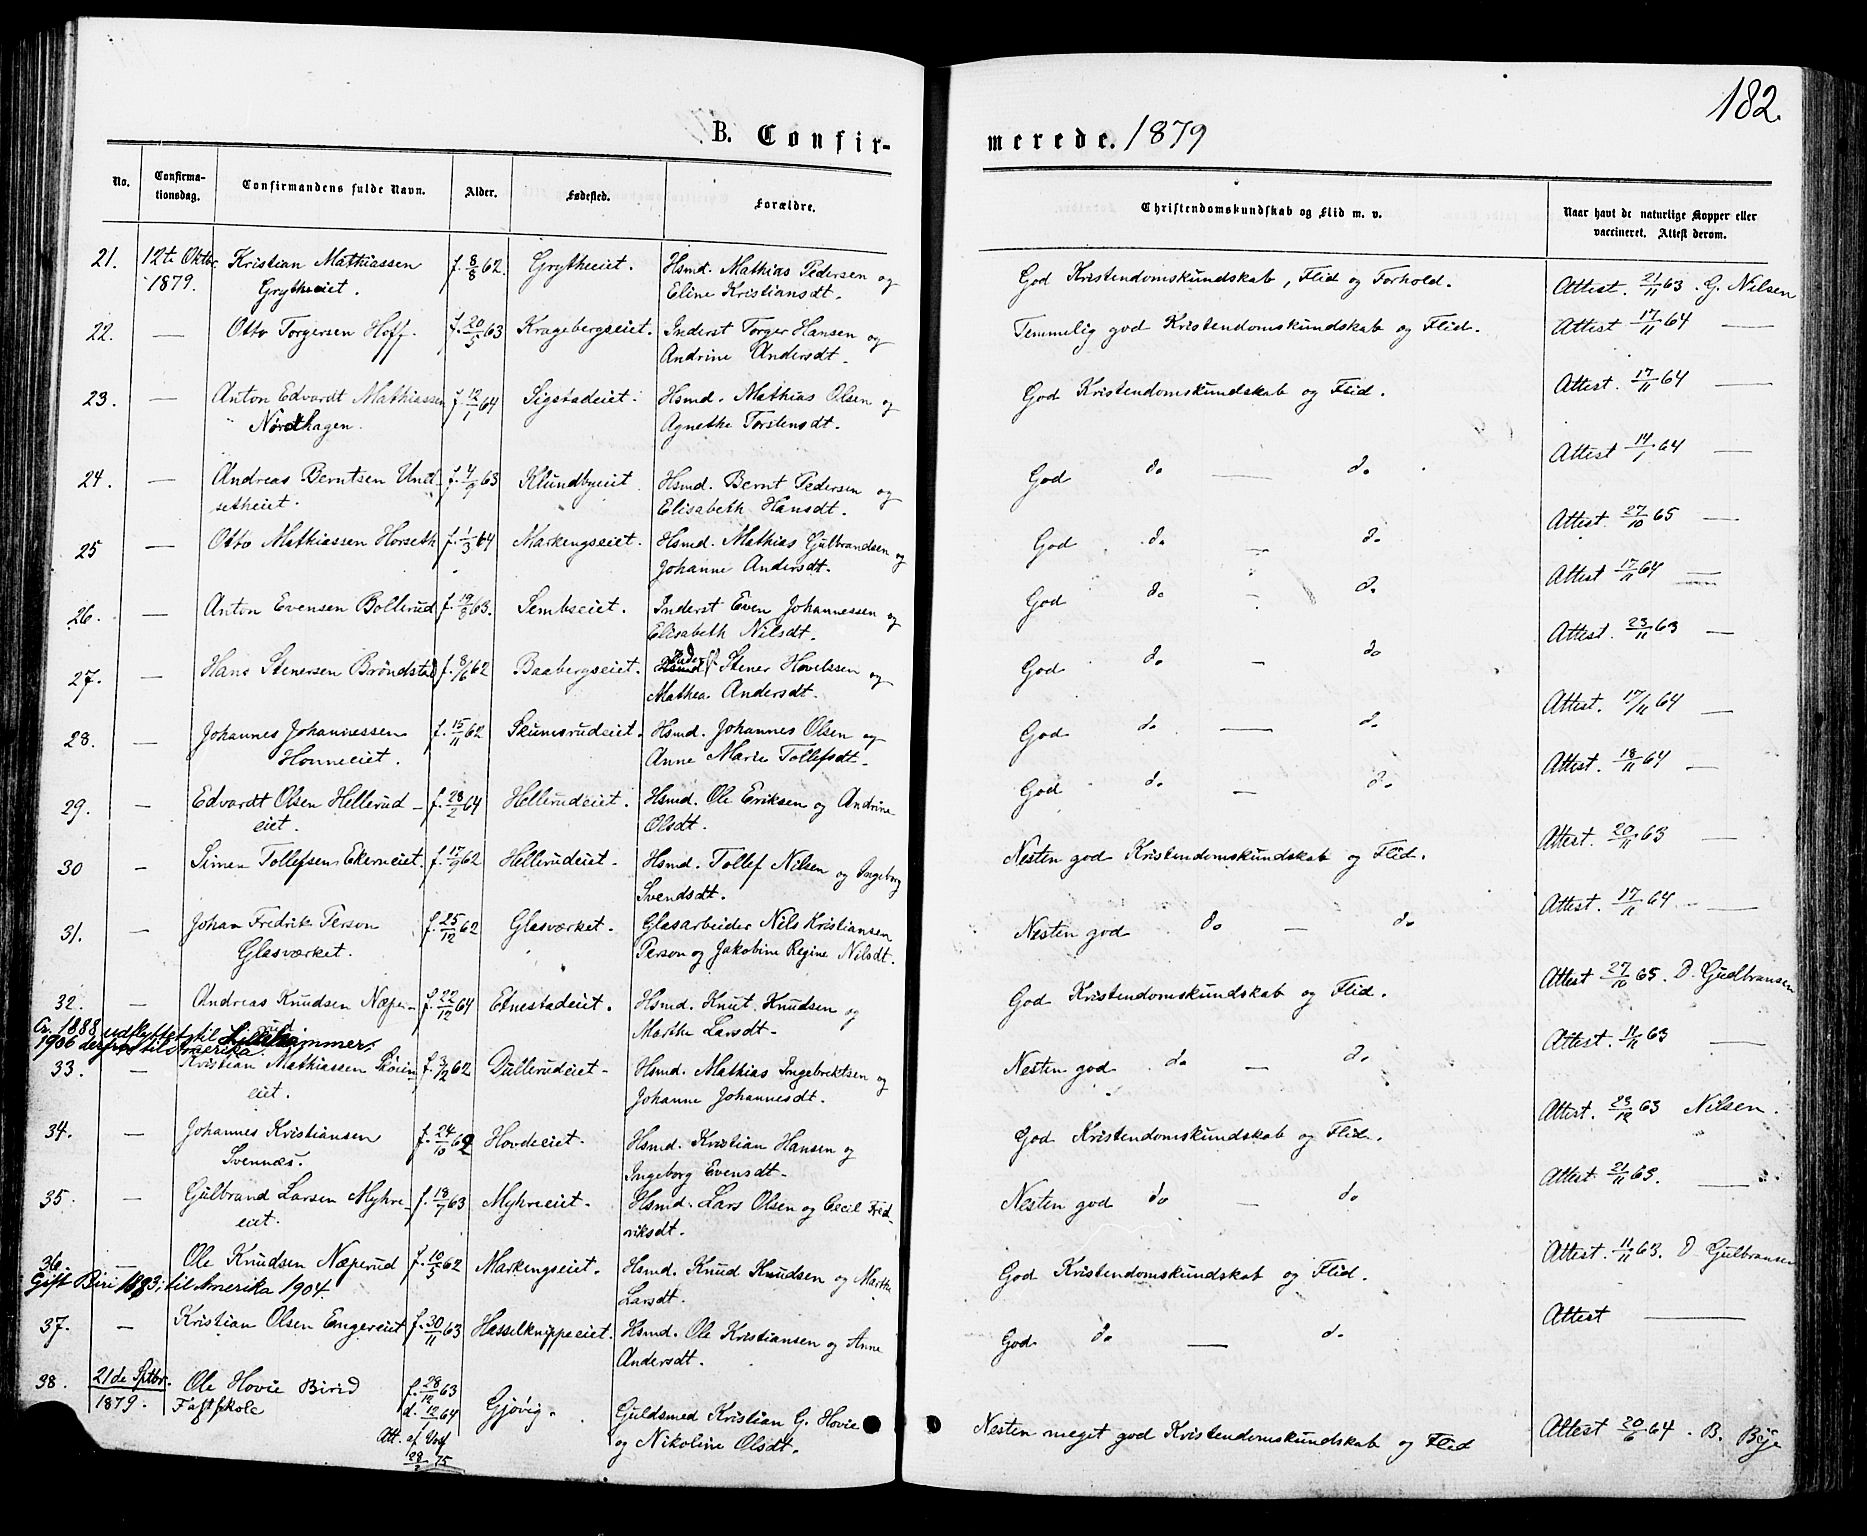 182.
B. Confir-
merede. 1879
No.
Confirma-
tionsdag.
Confirmandens fulde Navn.
Alder.
Fødested.
Forældre.
Christendomskundskab og Flid m. v.
Naar havt de naturlige Kopper eller
vaccineret. Attest derom.
21. 12te Oktbr Kristian Mathiassen f. 8/8 62. Grytheeiet. Hsmd. Mathias Pedersen og God Kristendomskundskab, Flid og Forhold. Attest. 21/11 63. G. Nilsen
1879. Grytheeiet. Eline Kristiansdt.
22. — Otto Torgersen Hoff. f. 20/5 63 Kragebergseiet. Inderst Torger Hansen og Temmelig god Kristendomskundskab og Flid. Attest 17/11 64 —
Andrine Andersdt.
23. — Anton Edvardt Mathiassen f. 12/1 64 Sigstadeiet. Hsmd. Mathias Olsen og God Kristendomskundskab og Flid. Attest. 17/11 64 —
Nordhagen. Agnethe Torstensdt.
24. — Andreas Berntsen Und- f. 4/9 63 Klundbyeiet Hsmd. Bernt Pedersen og God do — do Attest 14/1 64 —
setheiet. Elisabeth Hansdt.
25 — Otto Mathiassen Horseth f. 1/3 64 Markengseiet. Hsmd. Mathias Gulbrandsen og God do — do Attest. 27/10 65 —
Johanne Andersdt.
26. — Anton Evensen Bollerud f. 19/8 63. Sembseiet. Inderst Even Johannessen og God do — do Attest 17/11 64 —
Elisabeth Nilsdt.
27. — Hans Stenersen Brøndstad f. 8/6 62 Baabergseiet. Hsmd. Inderst Stener Hovelssen og God do — do Attest. 23/11 63 —
Mathea Andersdt.
28. — Johannes Johannessen f. 15/11 62 Skumsrudeiet. Hsmd. Johannes Olsen og God do — do Attest. 17/11 64 —
Honneeiet. Anne Marie Tollefsdt.
29. — Edvardt Olsen Hellerud- f. 28/2 64 Hellerudeiet. Hsmd. Ole Eriksen og Andrine God do — do Attest. 18/11 64 —
eiet. Olsdt.
30 — Simen Tollefsen Ekerneiet. f. 17/9 62 Hellerudeiet. Hsmd. Tollef Nilsen og Ingeborg Nesten god Kristendomskundskab og Flid. Attest. 20/11 63 —
Svendsdt.
31. — Johan Fredrik Person f. 25/12 62 Glasværket. Glasarbeider Nils Kristiansen Nesten god do — do Attest. 17/11 64 —
Glasværket. Person og Jakobine Regine Nilsdt.
32. — Andreas Knudsen Næpe- f. 22/12 64 Etnestadeiet. Hsmd. Knut Knudsen og God Kristendomskundskab og Flid. Attest 27/10 65. D. Gudbransen
rud Marthe Larsdt.
Ca. 1888 udflyttet til Lillehammer.
1906 derfra til Amerika.
33. — Kristian Mathiassen Skiin- f. 3/12 62 Dullerudeiet. Hsmd. Mathias Ingebriktsen og Nesten god do — do Attest. 11/11 63 —
eiet. Johanne Johannesdt.
34. — Johannes Kristiansen f. 24/10 62 Hovdeeiet. Hsmd. Kristian Hansen og God Kristendomskundskab og Flid. Attest. 23/12 63 Nilsen.
Svennæs. Ingeborg Evensdt.
35. — Gulbrand Larsen Myhre- f. 18/7 63 Myhreeiet. Hsmd. Lars Olsen og Cecil Fred- Nesten god do — do Attest. 21/11 63. —
eiet. riksdt.
36. — Ole Knudsen Næperud f. 10/5 62 Markengseiet. Hsmd. Knud Knudsen og Marthe God Kristendomskundskab og Flid. Attest. 11/11 63. D. Gulbransen
Gift Biri 1883; til Amerika 1904. Larsdt.
37. — Kristian Olsen Engereiet f. 30/11 63 Hasselknippeeiet. Hsmd. Ole Kristiansen og Anne God do — do Attest —
Andersdt.
38. 21de Sptbr. Ole Hovie Birid f. 28/12 63 Gjøvig. Guldsmed Kristian G. Hovie Nesten meget god Kristendomskundskab og Flid Attest 20/6 64. B. Bye
1879. Fastskole d. 12/1 64 og Nikoline Olsdt.
Att. af
28/2 75